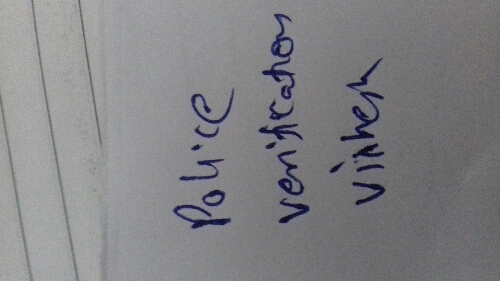 Police
verification
Vivhesh